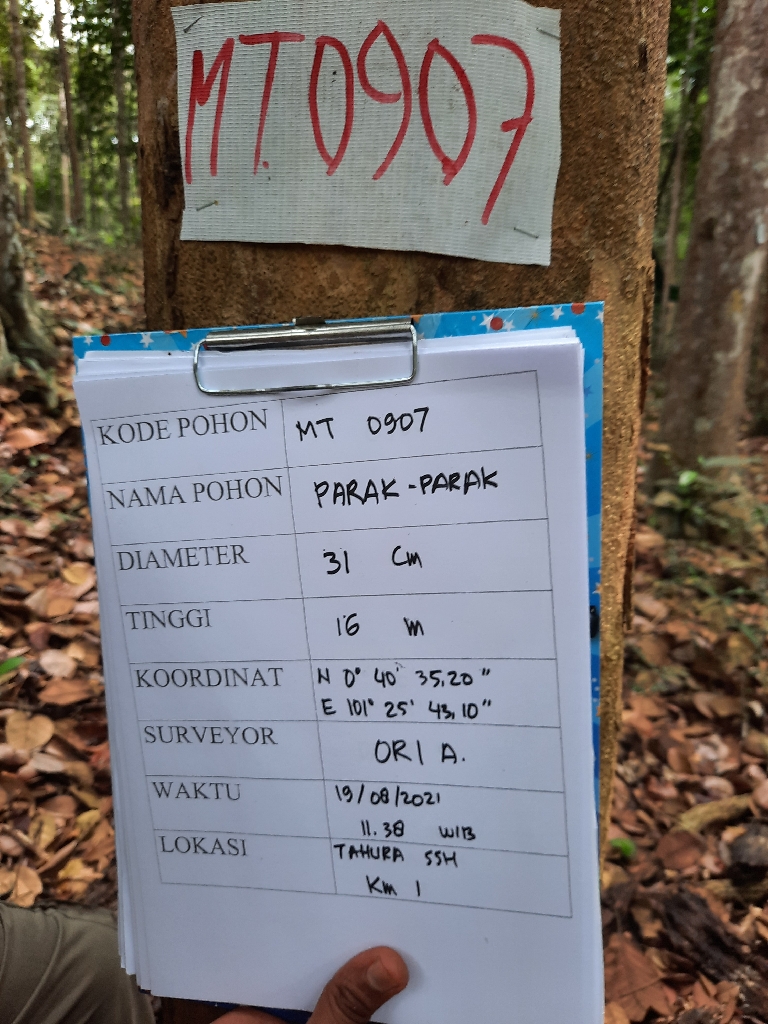 MT.0907
KODE POHON MT 0907
NAMA POHON PARAK-PARAK
DIAMETER 31 Cm
TINGGI 16 m
KOORDINAT N 0° 40' 35,20"
E 101° 25' 43,10"
SURVEYOR ORI A.
WAKTU 19/08/2021
11.38 WIB
LOKASI TAHURA SSH
Km 1